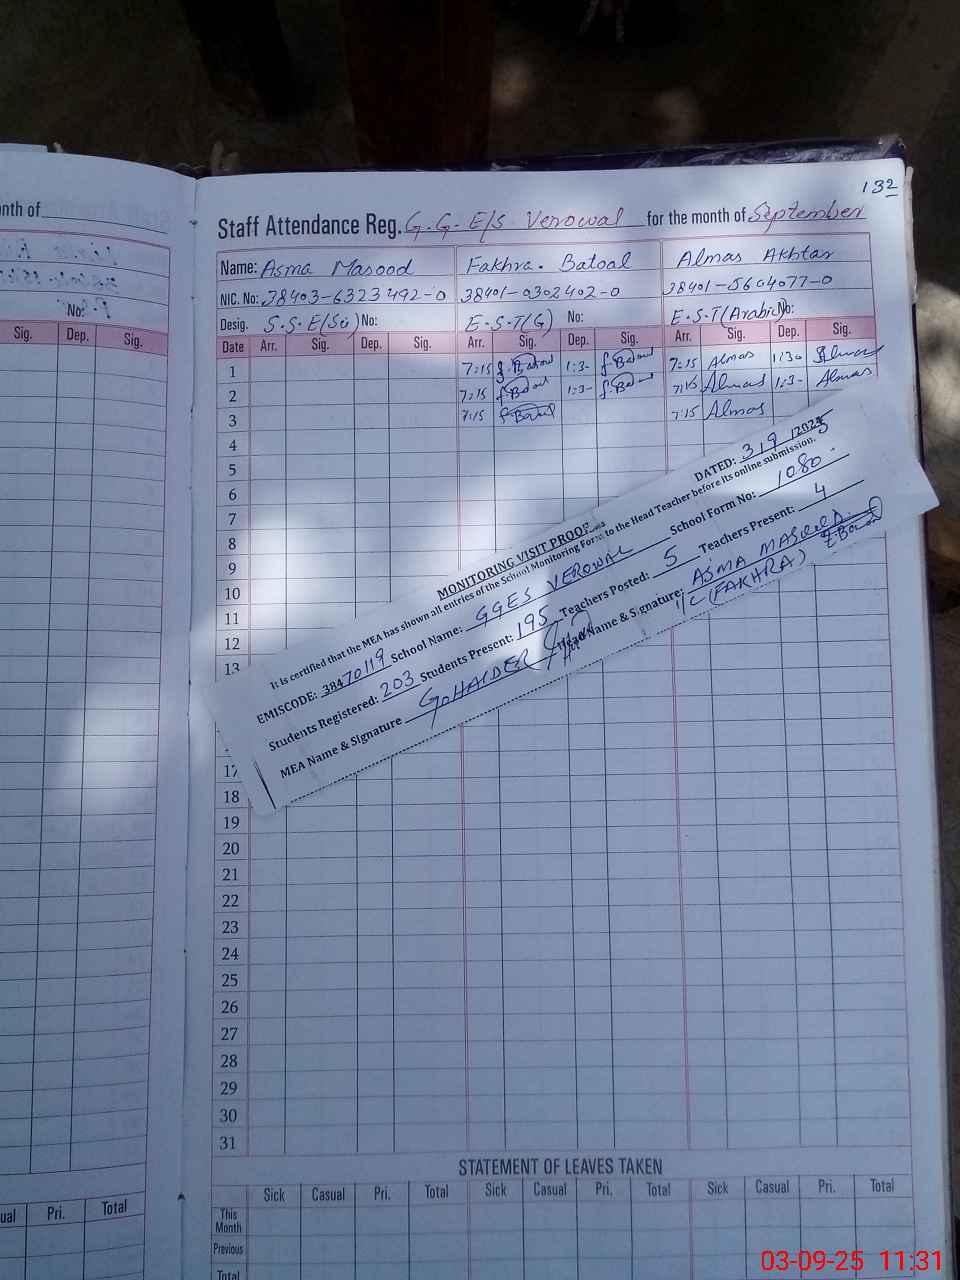 132
Staff Attendance Reg. G.G.E/S. Verowal for the month of September
onth of
Name: Asma Masood Fakhra. Batoal Almas Akhtar
NIC. No: 38403-6323492-0 38401-0302402-0 38401-5604077-0
Desig. S.S.E(Sci) No: E.S.T(G) No: E.S.T(Arabic) No:
No:
Sig. Dep. Sig.
Date Arr. Sig. Dep. Sig. Arr. Sig. Dep. Sig. Arr. Sig. Dep. Sig.
1 7:15 f.Batoul 1:3- f.Batoul 7:15 Almas 1:30 Almas
2 7:15 f.Batoul 1:3- f.Batoul 7:15 Almas 1:3- Almas
3 7:15 f.Batoul 7:15 Almas
4
5
6
7
8
9
10
11
12
13
MONITORING VISIT PROOF DATED: 3/9/2025
It is certified that the MEA has shown all entries of the School Monitoring Form to the Head Teacher before its online submission.
EMISCODE: 38470119 School Name: GGES VEROWAL School Form No: 1080.
Students Registered: 203 Students Present: 195 Teachers Posted: 5 Teachers Present: 4
MEA Name & Signature G.HAIDER Head Name & Signature: ASMA MASOOD.
I/C (FAKHRA)
17
18
19
20
21
22
23
24
25
26
27
28
29
30
31
STATEMENT OF LEAVES TAKEN
Sick Casual Pri. Total Sick Casual Pri. Total Sick Casual Pri. Total
ual Pri. Total
This Month
Previous
Total
03-09-25 11:31